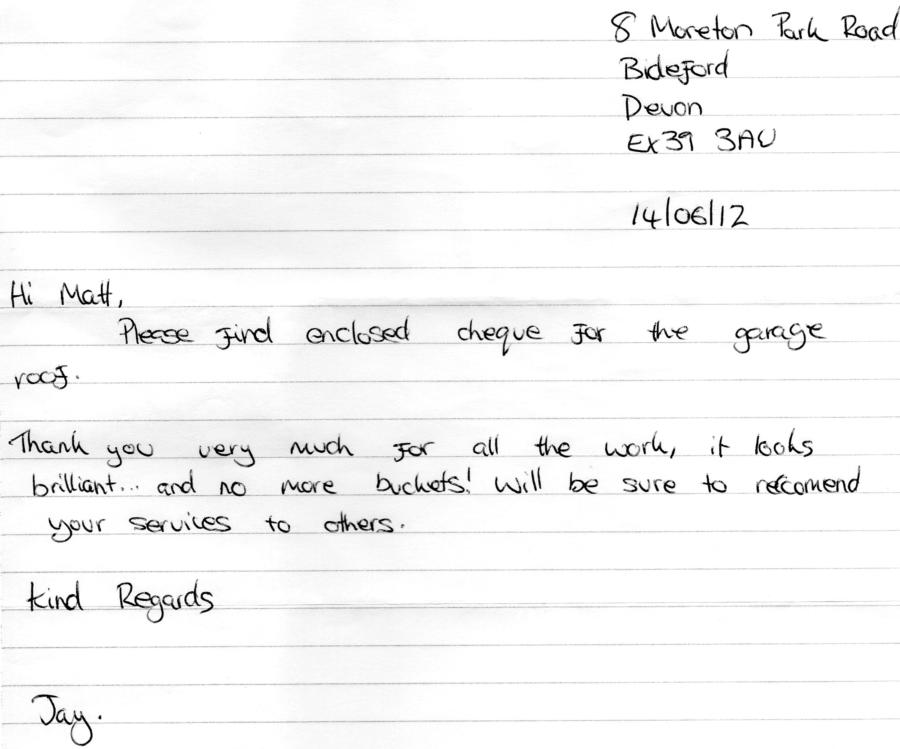 8 Moreton Park Road
Bideford
Devon
EX39 3AU
14/06/12
Hi Matt,
Please find enclosed cheque for the garage
roof.
Thank you very much for all the work, it looks
brilliant... and no more buckets! Will be sure to reccomend
your services to others.
Kind Regards
Jay.